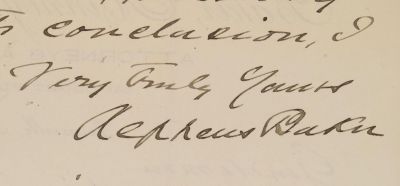 conclusion, I
Very truly Yours
Alpheus Baker